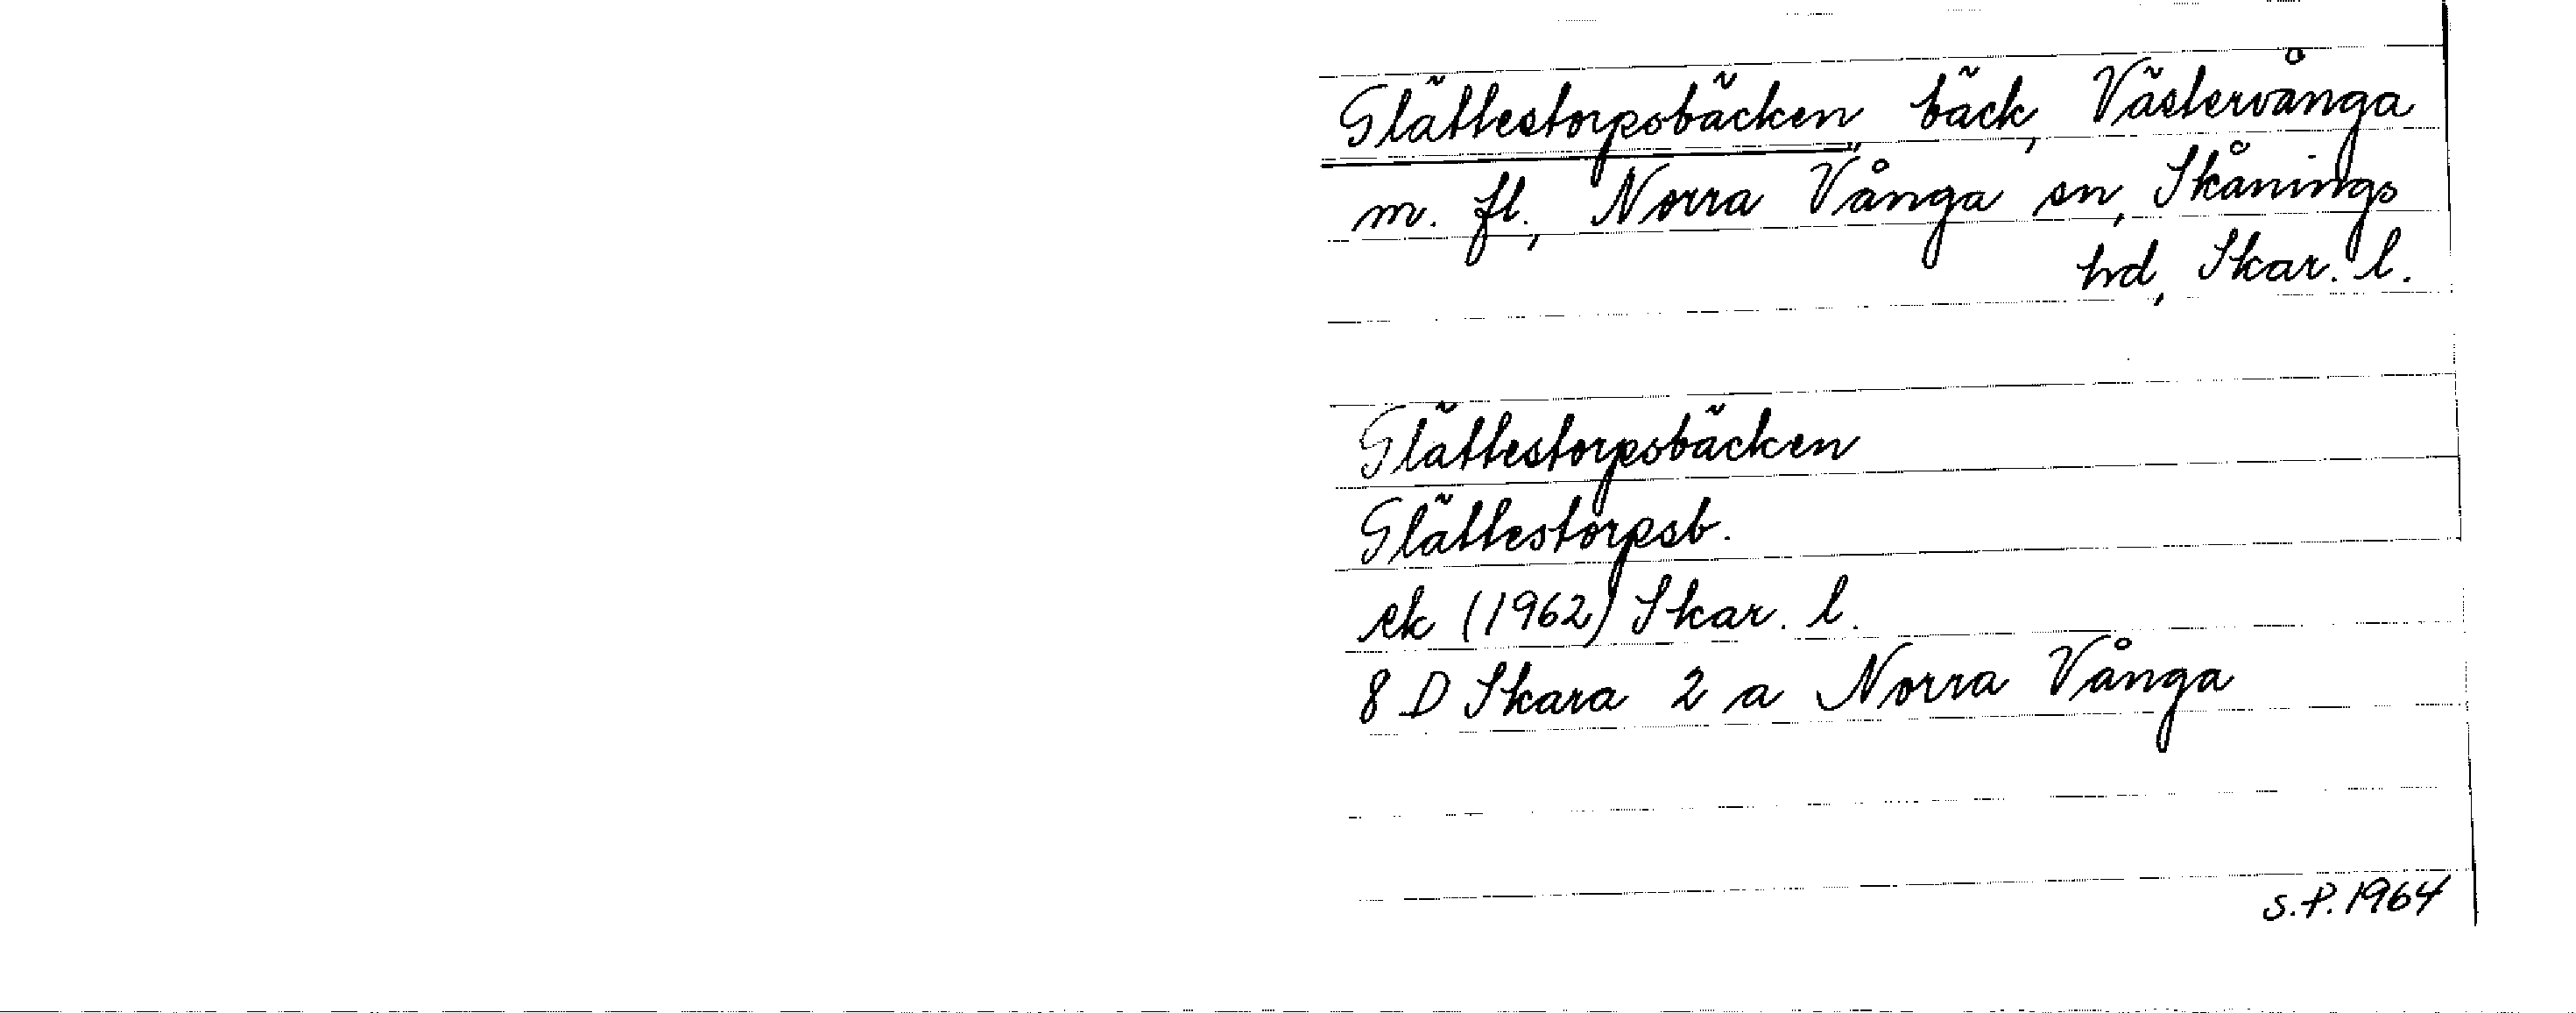 Glättestorpsbäcken, bäck, Västervånga
m. fl., Norra Vånga sn, Skånings
hd, Skar. l.
Glättestorpsbäcken
Glättestorpsb.
ek (1962) Skar. l.
8 D Skara 2 a Norra Vånga
S.P. 1964